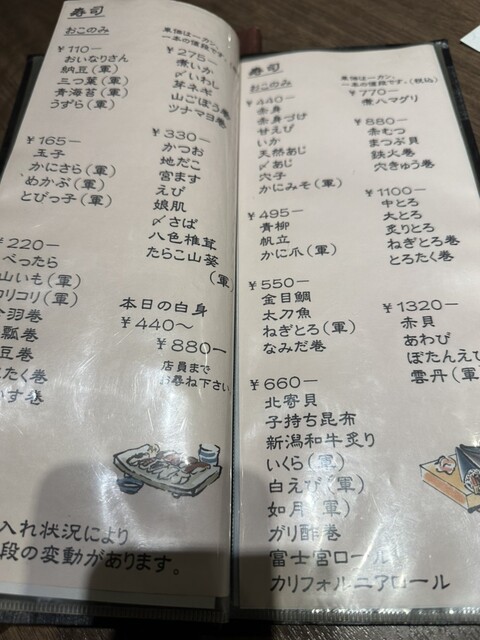 寿司
おこのみ
単価は一カン、
一本の値段です。
¥110ー
おいなりさん
納豆(軍)
三つ葉(軍)
青海苔(軍)
うずら(軍)
¥165ー
玉子
かにさら(軍)
めかぶ(軍)
とびっ子(軍)
¥220ー
べったら
山いも(軍)
コリコリ(軍)
羽巻
瓢巻
豆巻
たく巻
す巻
¥275ー
煮いか
〆いわし
芽ネギ
山ごぼう巻
ツナマヨ巻
¥330ー
かつお
地だこ
宮ます
えび
娘肌
〆さば
八色椎茸
たらこ山葵
(軍)
本日の白身
¥440〜
¥880ー
店員まで
お尋ね下さい
入れ状況により
段の変動があります。
寿司
おこのみ
単価は一カン、
一本の値段です。(税込)
¥440ー
赤身
赤身づけ
甘えび
いか
天然あじ
〆あじ
穴子
かにみそ(軍)
¥495ー
青柳
帆立
かに爪(軍)
¥550ー
金目鯛
太刀魚
ねぎとろ(軍)
なみだ巻
¥660ー
北寄貝
子持ち昆布
新潟和牛炙り
いくら(軍)
白えび(軍)
如月(軍)
ガリ酢巻
富士宮ロール
カリフォルニアロール
¥770ー
煮ハマグリ
¥880ー
赤むつ
まつぶ貝
鉄火巻
穴きゅう巻
¥1100ー
中とろ
大とろ
炙りとろ
ねぎとろ巻
とろたく巻
¥1320ー
赤貝
あわび
ぼたんえび
雲丹(軍)